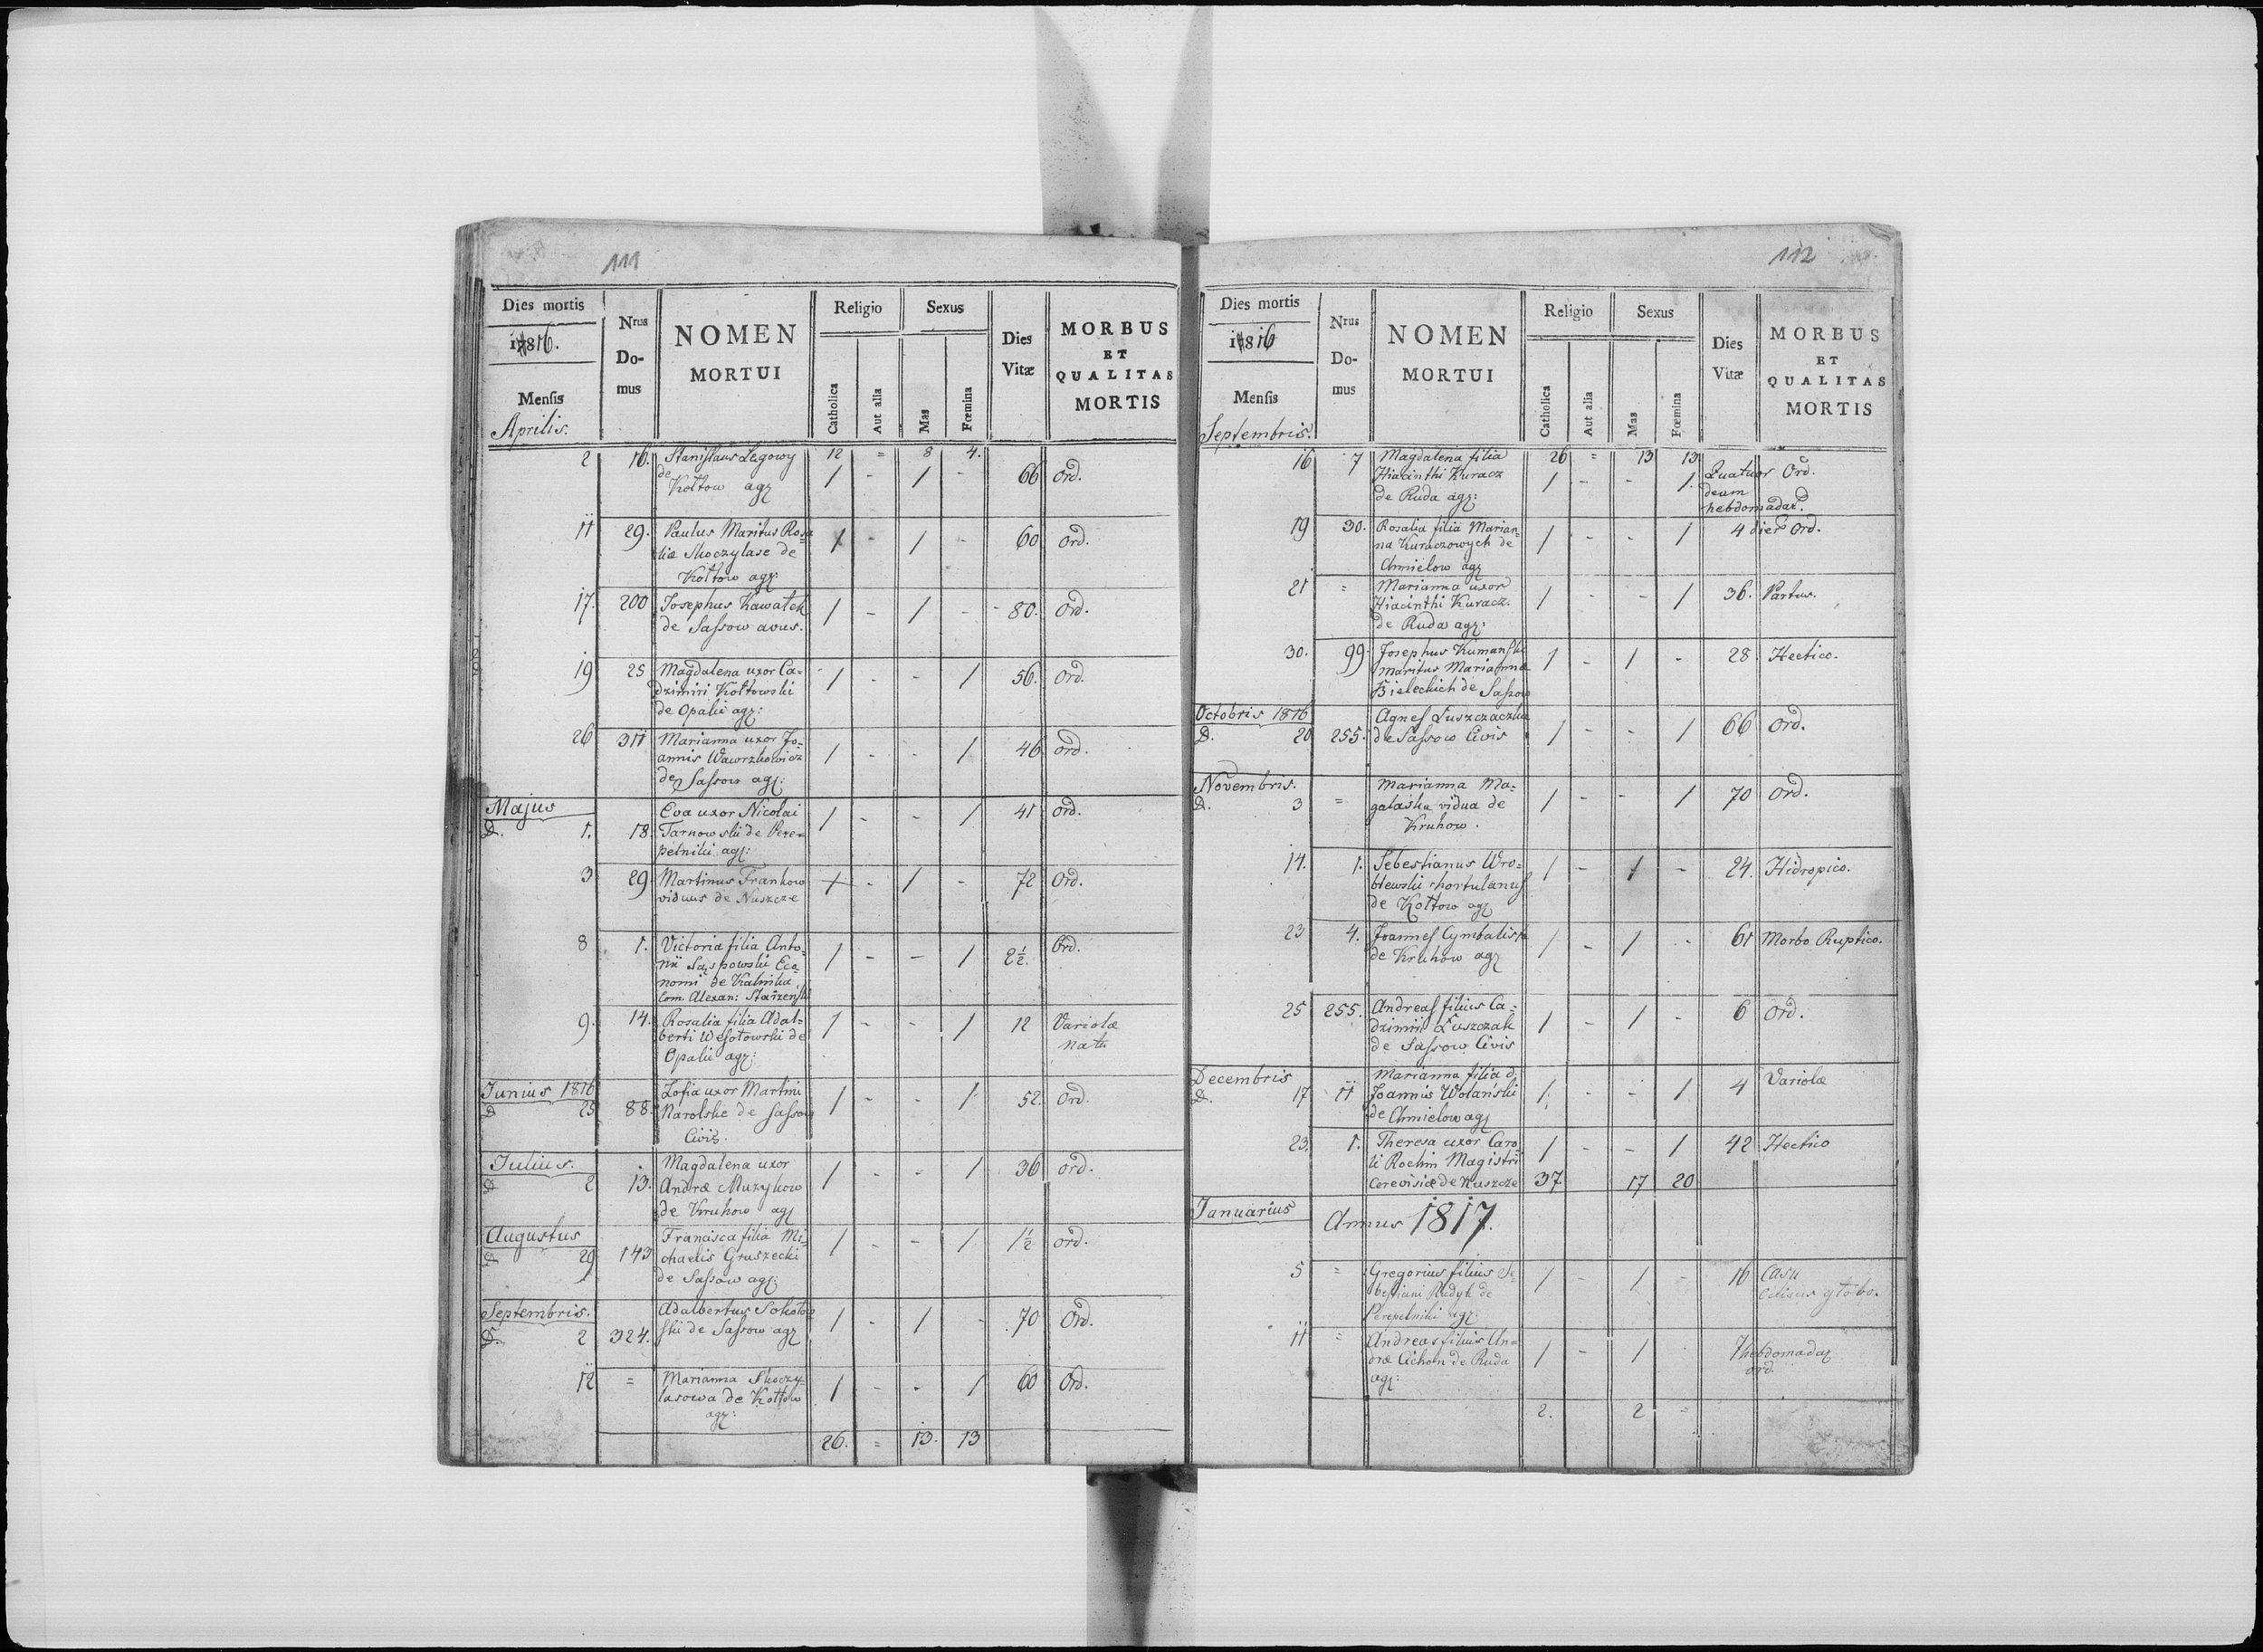 111
Dies mortis
1816.
Mensis
Aprilis.
Nrus
Do-
mus
NOMEN
MORTUI
Religio
Catholica
Aut alia
Sexus
Mas
Fœmina
Dies
Vitæ
MORBUS
ET
QUALITAS
MORTIS
12 = 8 4.
2 16. Stanislaus Legowy 1 - 1 66 Ord.
de
Koltow agr
11 29. Paulus Maritus Rosa 1 - 1 - 60 Ord.
liæ Skoczylase de
Koltow agr:
17. 200 Josephus Kawałek 1 - 1 - 80. Ord.
de Sassow avus.
19 25 Magdalena uxor Ca= 1 - - 1 56. Ord.
dzimiri Kołtowski
de Opaki agr:
26 311 Marianna uxor Jo= 1 - - 1 46 Ord.
annis Wawrzkowicz
de Sassow agr:
Majus
D. 1. 18. Eva uxor Nicolai 1 - - 1 41 Ord.
Tarnowski de Pere=
pelniki agr:
3 29 Martinus Frankow 1 - 1 - 72 Ord.
viduus de Nuszcze
8 1. Victoria filia Anto= 1 - - 1 2½ Ord.
nii Eco=
nomi de
Com Alexan: Starzenski
9. 14. Rosalia filia Adal= 1 - - 1 12 Variolæ
berti Wesołowski de natu
Opaki agr:
Junius 1816
D 25 88. Zofia uxor Martini 1 - - 1 52. Ord.
Narolski de Sassow
Civis.
Julius.
D 2 13. Magdalena uxor 1 - - 1 36 Ord.
Andræ Muzykow
de Kruhow agr
Augustus
D 29 143 Francisca filia Mi= 1 - - 1 1½ Ord.
chaelis Gruszecki
de Sassow agr:
Septembris.
D. 2 324. Adalbertus Sokołow 1 - 1 - 70 Ord.
ski de Sassow agr
12 = Marianna Skoczy= 1 - - 1 60 Ord.
lasowa de Koltow
agr:
26. = 13. 13
112
Dies mortis
1816
Mensis
Septembris.
Nrus
Do-
mus
NOMEN
MORTUI
Religio
Catholica
Aut alia
Sexus
Mas
Fœmina
Dies
Vitæ
MORBUS
ET
QUALITAS
MORTIS
26 = 13 13
16 7 Magdalena filia 1 - - 1. Quatuor Ord.
Hiacinthi Kuracz
de Ruda agr:
hebdomadar.
19 30. Rosalia filia Marian= 1 - - 1 4 dier Ord.
na Kuraczowych de
Chmielow agr
21 = Marianna uxor 1 - - 1 36. Partus.
Hiacinthi Kuracz
de Ruda agr:
30. 99. Josephus Kumanski 1 - 1 - 28. Hectico.
maritus Mariannæ
Bieleckich de Sassow
Octobris 1816
D. 20 255. Agnes Łuszczaczka 1 - - 1 66 Ord.
de Sassow Civis
Novembris.
D. 3 = Marianna Ma= 1 - - 1 70 Ord.
galaska vidua de
Kruhow.
14. 1. Sebestianus Wro= 1 - 1 - 24. Hidropico.
blewski hortulanus
de Koltow agr
23 4. Joannes Cymbalista 1 - 1 - 61 Morbo Ruptico.
de Kruhow agr
25 255. Andreas filius Ca= 1 - 1 - 6 Ord.
dzimiri Łuszczak
de Sassow Civis
Decembris
D. 17 11 Marianna filia 1. - - 1 4 Variolæ
Joannis Wolański
de Chmielow agr
23. 1. Theresa uxor Caro 1 - - 1 42 Hectico
li Rochin Magistri
Cerevisiæ de Nuszcze 37 17 20
Januarius Annus 1817.
5 = Gregorius filius Se= 1 - 1 - 16 Casu
bestiani Rudyk de
Perepelniki agr:
11 = Andreas filius An= 1 - 1 7 hebdomadar
dræ Cichon de Ruda ord.
agr:
2. 2 =